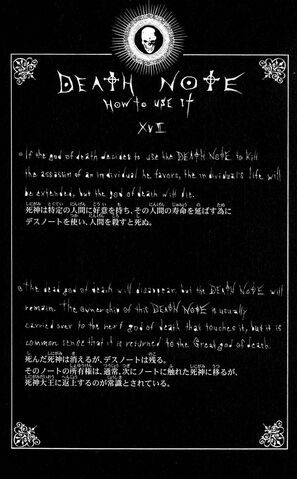 DEATH NOTE
HOW to USE It
XVI
○ If the god of death decides to use the DEATH NOTE to kill
the assassin of an individual he favors, the individual's life will
be extended, but the god of death will die.
死神は特定の人間に好意を持ち、その人間の寿命を延ばす為に
デスノートを使い、人間を殺すと死ぬ。
○ The dead god of death will disappear, but the DEATH NOTE will
remain. The ownership of this DEATH NOTE is usually
carried over to the next god of death that touches it, but it is
common sense that it is returned to the Great god of death.
死んだ死神は消えるが、デスノートは残る。
そのノートの所有権は、通常、次にノートに触れた死神に移るが、
死神大王に返上するのが常識とされている。